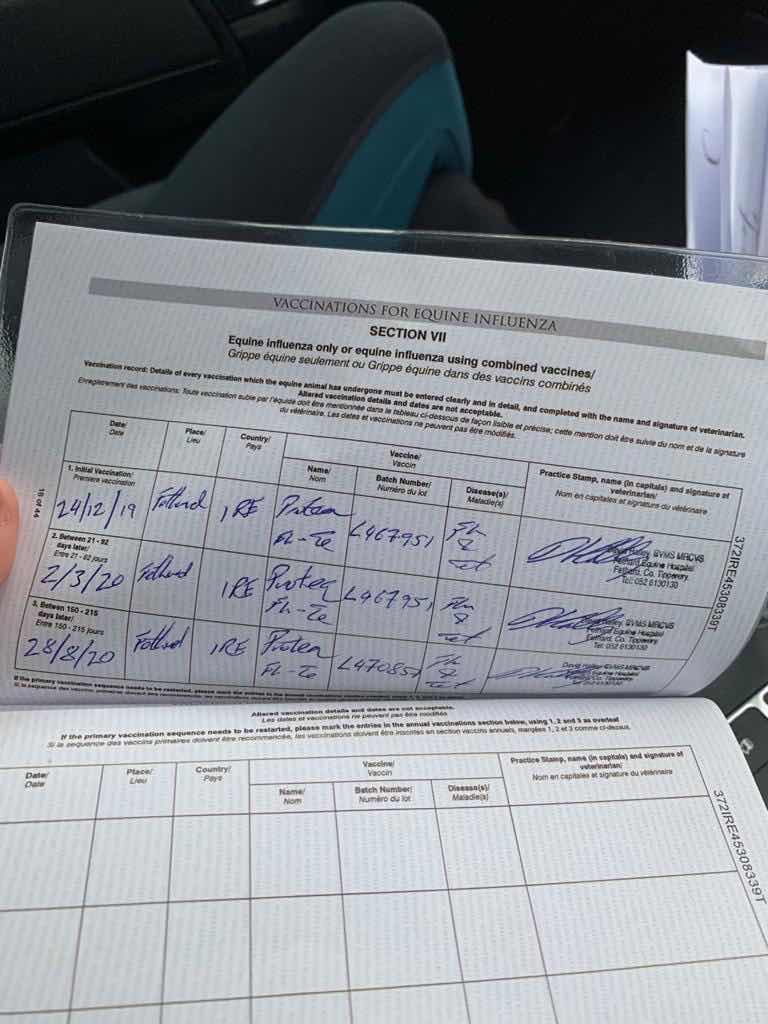 VACCINATIONS FOR EQUINE INFLUENZA
SECTION VII
Equine influenza only or equine influenza using combined vaccines/
Grippe équine seulement ou Grippe équine dans des vaccins combinés
Vaccination record: Details of every vaccination which the equine animal has undergone must be entered clearly and in detail, and completed with the name and signature of veterinarian.
Altered vaccination details and dates are not acceptable.
Enregistrement des vaccinations: Toute vaccination subie par l'équidé doit être mentionnée dans le tableau ci-dessous de façon lisible et précise; cette mention doit être suivie du nom et de la signature
du vétérinaire. Les dates et vaccinations ne peuvent pas être modifiés.
Date/
Date
Place/
Lieu
Country/
Pays
Vaccine/
Vaccin
Name/
Nom
Batch Number/
Numéro du lot
Disease(s)/
Maladie(s)
Practice Stamp, name (in capitals) and signature of
veterinarian/
Nom en capitales et signature du vétérinaire
1. Initial Vaccination/
Première vaccination
24/12/19
IRE
L467951
Fethard Equine Hospital
Fethard, Co. Tipperary.
Tel: 052 6130130
2. Between 21 - 92
days later/
Entre 21 - 92 jours
2/3/20
IRE
Proteq
L467951
Flu
&
Tet
Fethard Equine Hospital
Fethard, Co. Tipperary.
Tel: 052 6130130
3. Between 150 - 215
days later/
Entre 150 - 215 jours
28/8/20
IRE
David Halley BVMS MRCVS
Fethard Equine Hospital
Fethard, Co. Tipperary.
Tel: 052 6130130
18 of 44
372IRE45308339T
If the primary vaccination sequence needs to be restarted, please mark the entries in the annual vaccinations section
Altered vaccination details and dates are not acceptable.
Les dates et vaccinations ne peuvent pas être modifiés
If the primary vaccination sequence needs to be restarted, please mark the entries in the annual vaccinations section below, using 1, 2 and 3 as overleaf
Date/
Date
Place/
Lieu
Country/
Pays
Vaccine/
Vaccin
Name/
Nom
Batch Number/
Numéro du lot
Disease(s)/
Maladie(s)
Practice Stamp, name (in capitals) and signature of
veterinarian/
Nom en capitales et signature du vétérinaire
372IRE45308339T